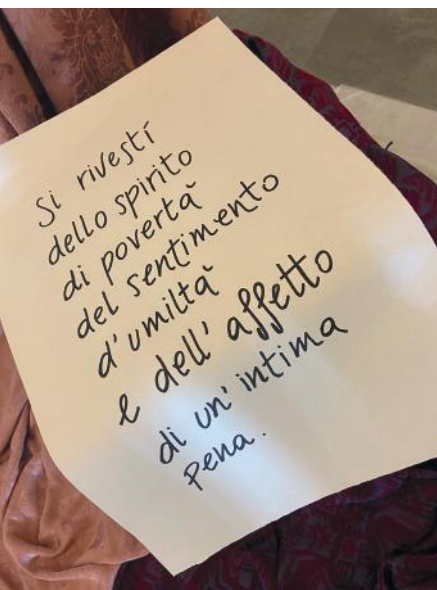 Si rivestí
dello spirito
di povertà
del sentimento
d'umiltà
e dell'affetto
di un'intima
pena.